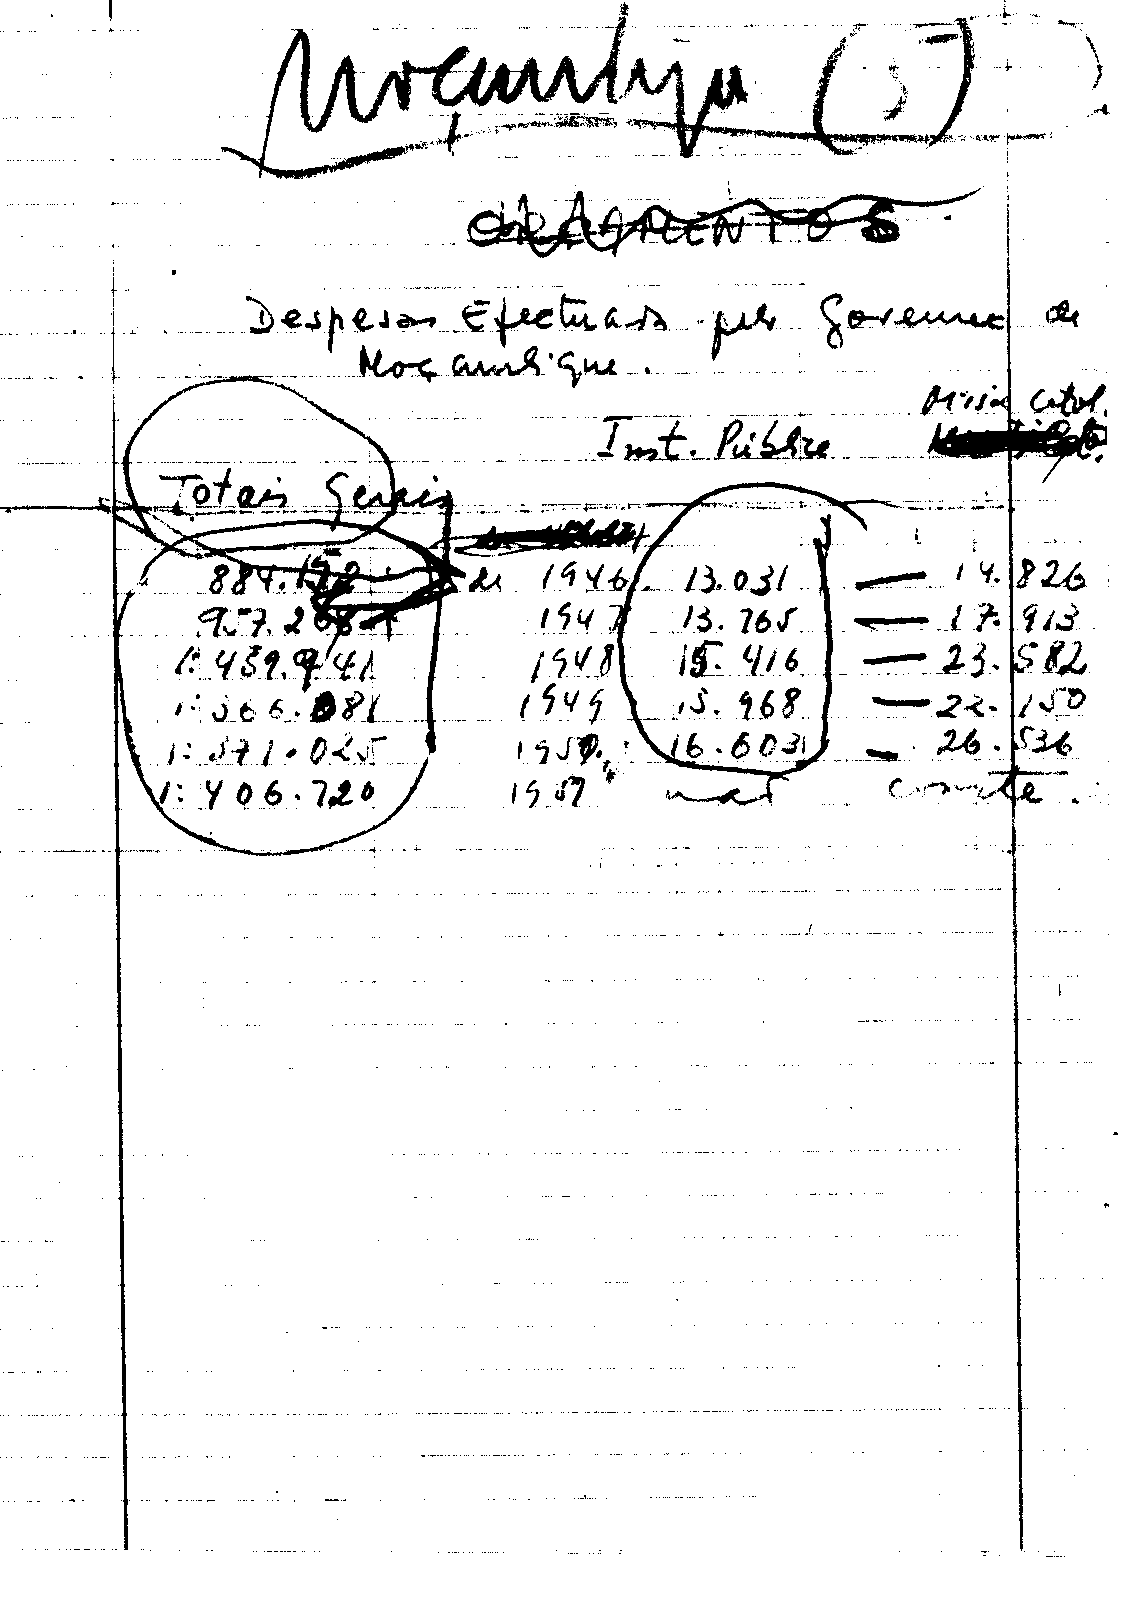 Moçambique (5)
ORÇAMENTOS
Despesas Efectuadas pelo Governo de
Moçambique.
Missões Catol.
Inst. Pública
Totais Gerais
884.192 de 1946. 13.031 — 14.826
957.268 1947 13.765 — 17.913
1:439.941 1948 15.416 — 23.582
1:366.081 1949 15.968 — 22.150
1:371.025 1950. 16.603 — 26.536
1:406.720 1951 não consta.